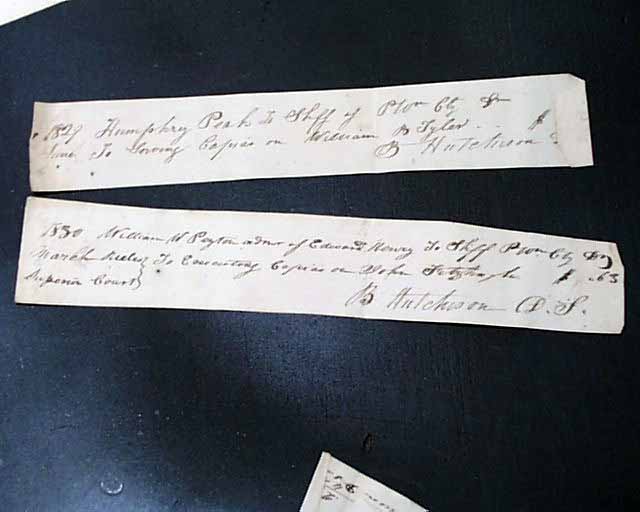 1829 Humphrey Peak To Shff of P Wm Cty Dr
June To Serving Copias on William B Tyler $
B Hutchison
1830 William W Peyton admr of Edward Henry To Shff P Wm Cty Dr
March Rules To Executing Copias on John Fitzhugh $ .63
Superior Court
B Hutchison D. S.